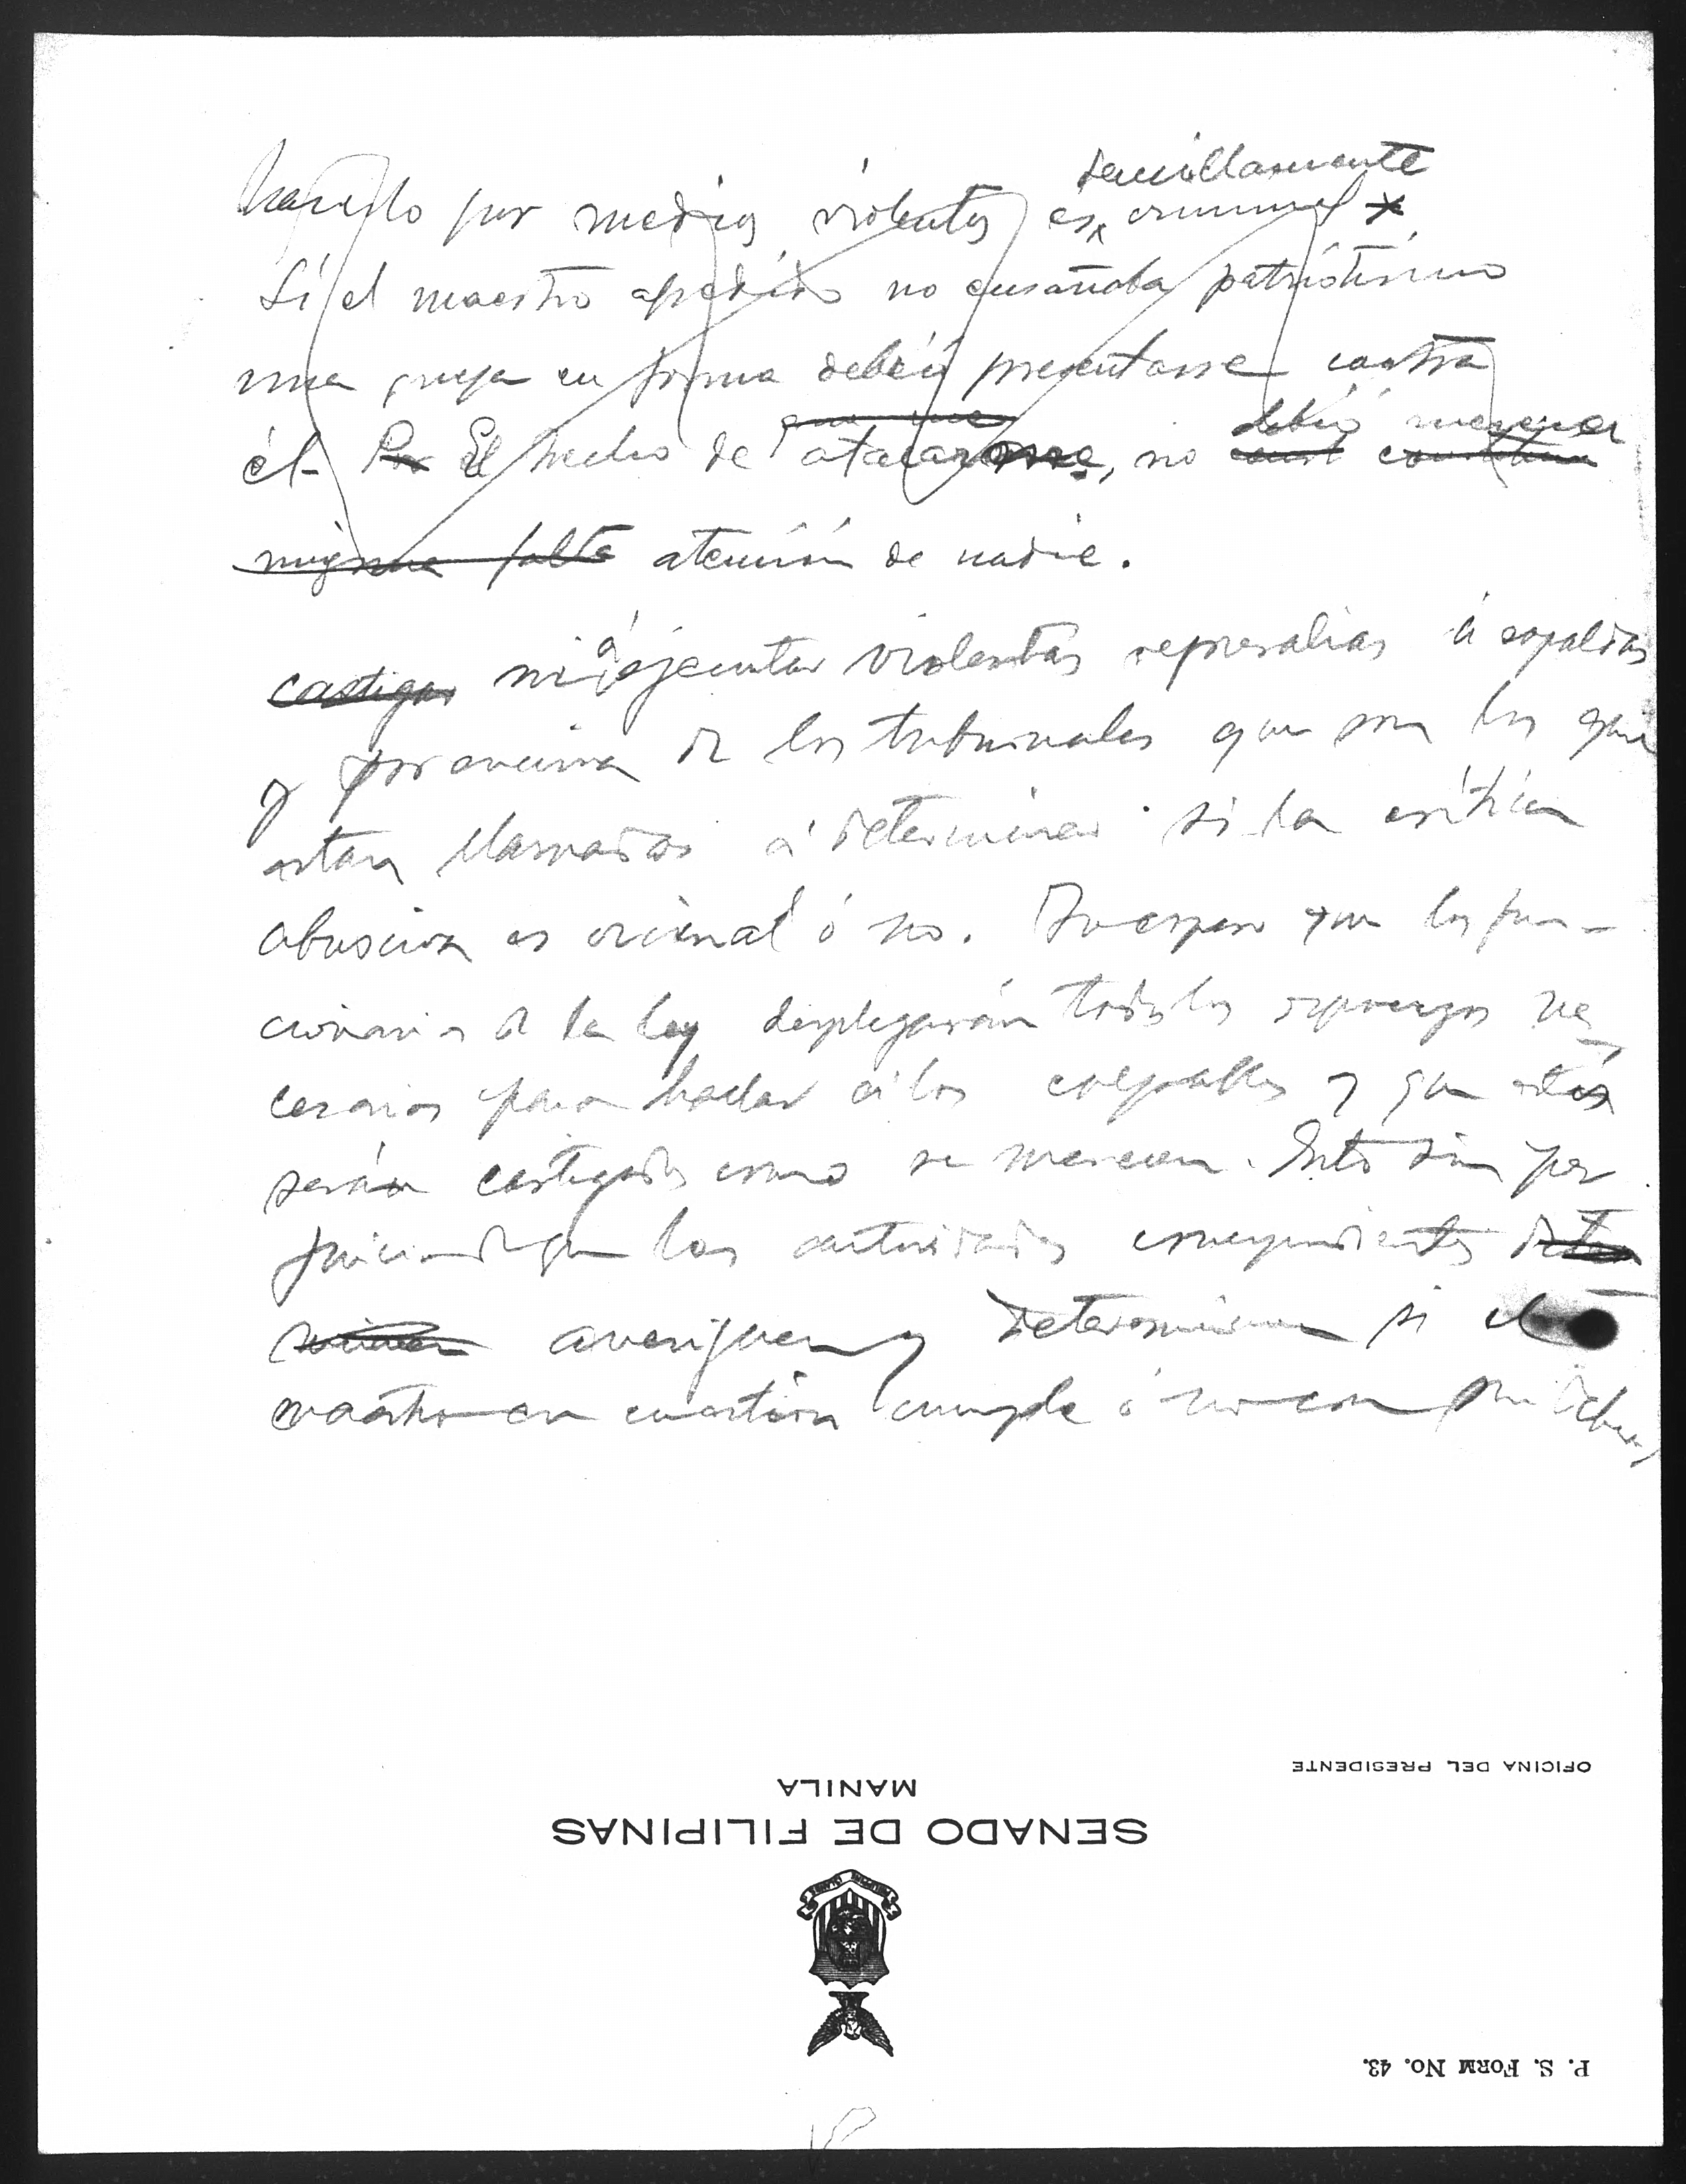 sencillamente
hacerlo por medios violentos es criminal
Si el maestro aludido no enseñaba patriotismo
una queja en forma debió presentarse contra
él. Por El hecho de atacarme, no
debió merecer
atención de nadie.
castigar ni á ejecutar violentas represalias á espaldas
y por encima de los tribunales que son los que
estan llamados á determinar si la crítica
abusiva es criminal ó no. Yo espero que los fun-
cionarios de la ley desplegarán todos los esfuerzos ne-
cesarios para hallar á los culpables y que estos
serán castigados como se merecen. Esto sin per
juicio de que las autoridades correspondientes
averiguen y determinen si el
maestro en cuestión cumple ó no con su deber
OFICINA DEL PRESIDENTE
MANILA
SENADO DE FILIPINAS
P. S. FORM NO. 43.